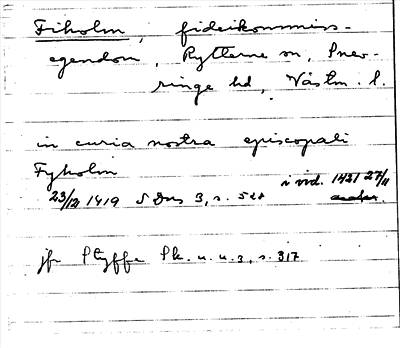 Fiholm, fideikommiss-
egendom, Rytterne sn, Snev-
ringe hd, Västm. l.
in curia nostra episcopali
Fyholm
i vid. 1421 27/11
23/12 1419 SDns 3, s. 521
jfr Styffe Sk. u. u. 3, s. 317